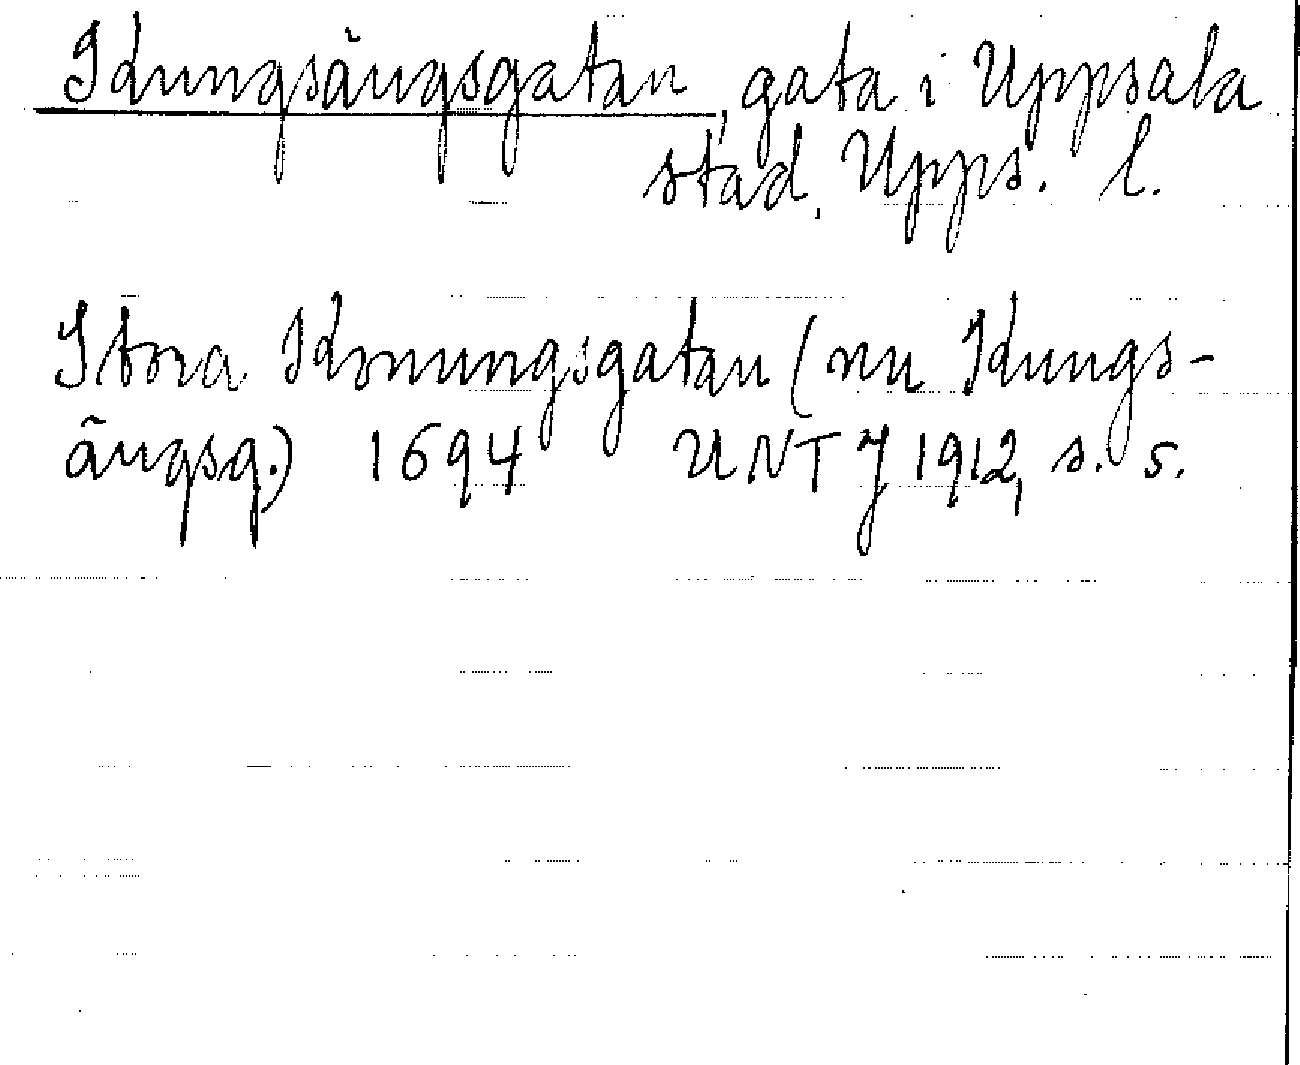 Kungsängsgatan, gata i Uppsala
stad, Upps. l.
Stora Konungsgatan (nu Kungs-
ängsg.) 1694 UNT J 1912, s. 5.